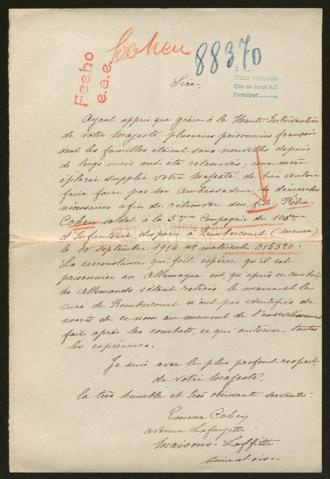 Fecho
e.a.e.
Cohen
88370
Sire,
Ayant appris que grâce à la Haute Intervention
de votre Majesté plusieurs prisonniers français
dont les familles étaient sans nouvelles depuis
de longs mois ont été retrouvés, une mère
éplorée supplie votre Majesté de bien vouloir
faire faire par son Ambassadeur les démarches
nécessaires afin de retrouver son fils Félix
Cohen soldat à la 5ème Compagnie du
d'Infanterie disparu à Rembercourt (Meuse)
le 10 septembre 1914 No matricule 015520
La circonstance qui fait espérer qu'il est
prisonnier en Allemagne est qu'après ce combat
les Allemands s'étant retirés le maire et le
curé de Rembercourt n'ont pas identifié de
morts de ce nom au moment de l'ensevelissement
fait après les combats, ce qui autorise toutes
les espérances.
Je suis avec le plus profond respect
de votre Majesté,
la très humble et très obéissante servante.
Emma
avenue Lafayette
Maisons-Laffitte
Seine et Oise